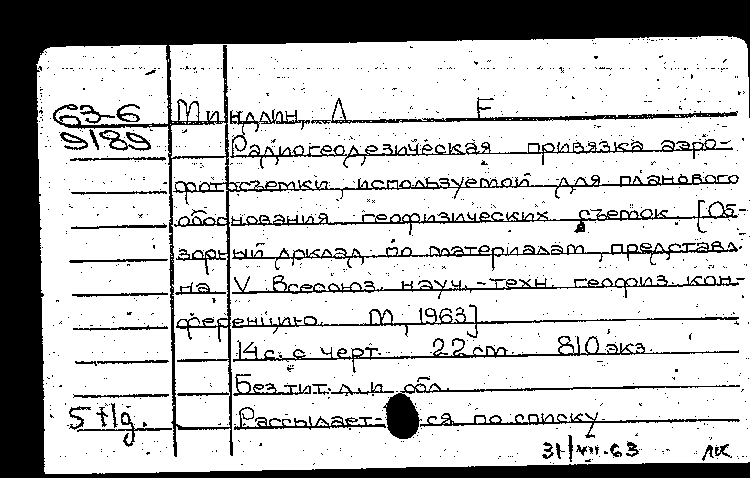 63-6 Миндлин, Л Е
9189 Радиогеодезическая привязка аэро-
фотосъемки, используемой для планового
обоснования геофизических съемок. [Об-
зорный доклад по материалам, представл.
на V Всесоюз. науч.-техн. геофиз. кон-
ференцию. М., 1963]
14 с. с черт. 22 cm. 810 экз.
Без тит. л. и обл.
Рассылает-ся по списку
31/VII-63